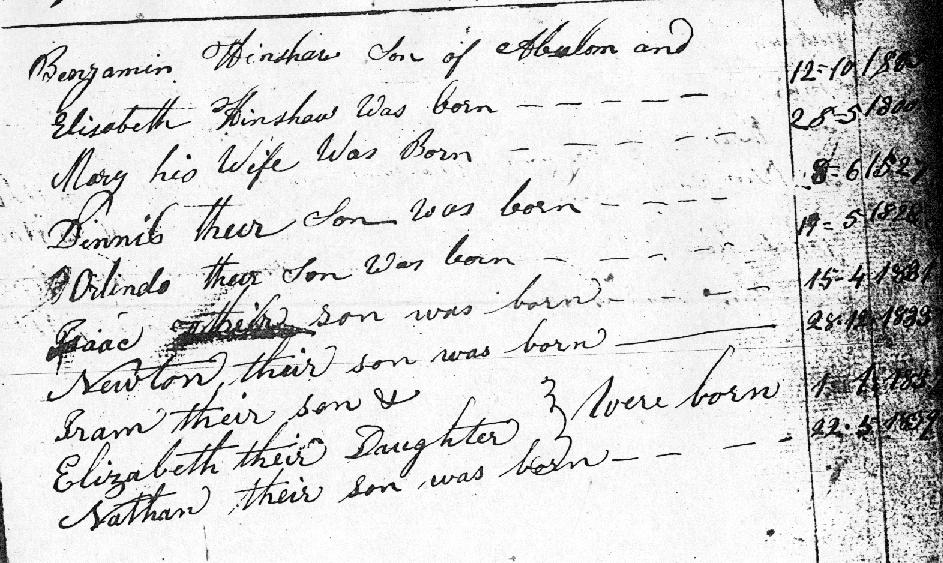 Benjamin Hinshaw Son of Absalom and
Elisabeth Hinshaw Was born - - - - - 12=10
Mary his Wife Was Born - - - - - 28=5 1800
Dennis their Son was born - - - - 8=6 1827
Orlindo their Son was born - - - - - 19=5 1828
Isaac their son was born - - - - 15-4 1831
Newton their son was born —— 28.12.1833
Iram their son &
Elizabeth their Daughter } Were born
Nathan their son was born - - - - 22.5.